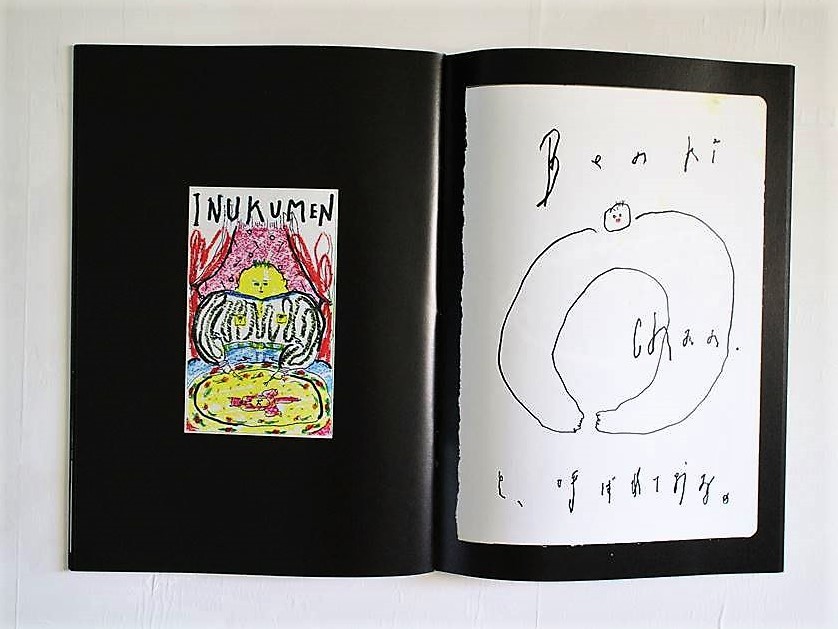 INUKUMEN
Benki
Chan.
と、呼ばれておる。